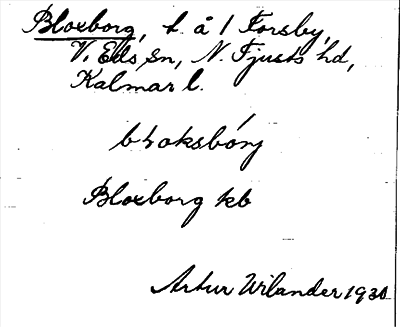 Bloxborg, t. å 1 Forsby,
V. Eds sn, N. Tjusts hd,
Kalmar l.
bloksbórj
Bloxborg kb
Artur Wilander 1930